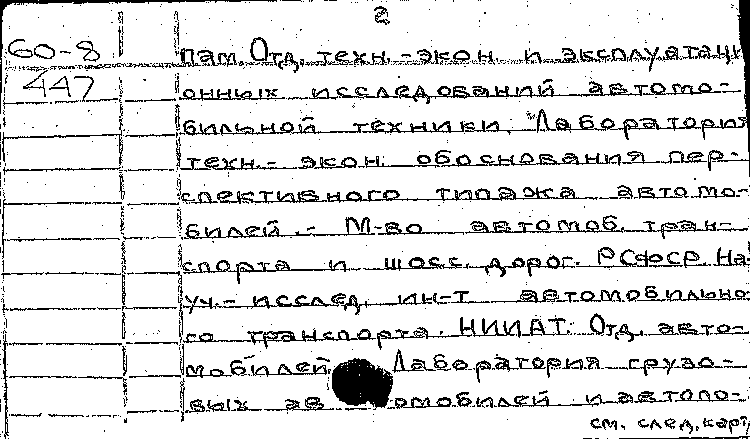 2
60-8
447
пам. Отд. техн.-экон. и эксплуатаци
онных исследований автомо-
бильной техники. Лаборатория
техн.- экон. обоснования пер-
спективного типажа автомо-
билей.- М-во автомоб. тран-
спорта и шосс. дорог. РСФСР. На-
уч.- исслед. ин-т автомобильно
го транспорта. НИИАТ. Отд. авто-
мобилей Лаборатория грузо-
вых автомобилей и автопо-
см. след. карт